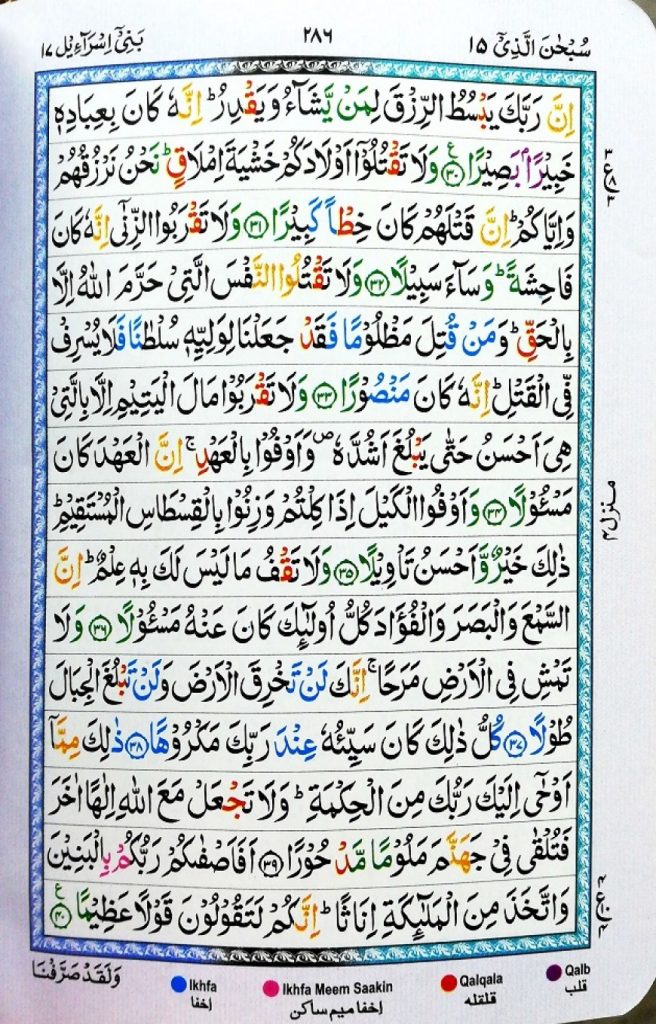 سُبْحٰنَ الَّذِىْٓ ١٥
٢٨٦
بَنِىْٓ اِسْرَآءِيْل ١٧
اِنَّ رَبَّكَ يَبْسُطُ الرِّزْقَ لِمَنْ يَّشَآءُ وَيَقْدِرُ ؕ اِنَّهٗ كَانَ بِعِبَادِهٖ
خَبِيْرًاۢ بَصِيْرًا ﴿٣٠﴾ ع وَلَا تَقْتُلُوْٓا اَوْلَادَكُمْ خَشْيَةَ اِمْلَاقٍ ؕ نَحْنُ نَرْزُقُهُمْ
وَاِيَّاكُمْ ؕ اِنَّ قَتْلَهُمْ كَانَ خِطْاً كَبِيْرًا ﴿٣١﴾ وَلَا تَقْرَبُوا الزِّنٰٓى اِنَّهٗ كَانَ
فَاحِشَةً ؕ وَسَآءَ سَبِيْلًا ﴿٣٢﴾ وَلَا تَقْتُلُوا النَّفْسَ الَّتِىْ حَرَّمَ اللّٰهُ اِلَّا
بِالْحَقِّ ؕ وَمَنْ قُتِلَ مَظْلُوْمًا فَقَدْ جَعَلْنَا لِوَلِيِّهٖ سُلْطٰنًا فَلَا يُسْرِفْ
فِّى الْقَتْلِ ؕ اِنَّهٗ كَانَ مَنْصُوْرًا ﴿٣٣﴾ وَلَا تَقْرَبُوْا مَالَ الْيَتِيْمِ اِلَّا بِالَّتِىْ
هِىَ اَحْسَنُ حَتّٰى يَبْلُغَ اَشُدَّهٗ ص وَاَوْفُوْا بِالْعَهْدِ ۚ اِنَّ الْعَهْدَ كَانَ
مَسْـُٔوْلًا ﴿٣٤﴾ وَاَوْفُوا الْكَيْلَ اِذَا كِلْتُمْ وَزِنُوْا بِالْقِسْطَاسِ الْمُسْتَقِيْمِ ؕ
ذٰلِكَ خَيْرٌ وَّاَحْسَنُ تَاْوِيْلًا ﴿٣٥﴾ وَلَا تَقْفُ مَا لَيْسَ لَكَ بِهٖ عِلْمٌ ؕ اِنَّ
السَّمْعَ وَالْبَصَرَ وَالْفُؤَادَ كُلُّ اُولٰٓئِكَ كَانَ عَنْهُ مَسْـُٔوْلًا ﴿٣٦﴾ وَلَا
تَمْشِ فِى الْاَرْضِ مَرَحًا ۚ اِنَّكَ لَنْ تَخْرِقَ الْاَرْضَ وَلَنْ تَبْلُغَ الْجِبَالَ
طُوْلًا ﴿٣٧﴾ كُلُّ ذٰلِكَ كَانَ سَيِّئُهٗ عِنْدَ رَبِّكَ مَكْرُوْهًا ﴿٣٨﴾ ذٰلِكَ مِمَّآ
اَوْحٰٓى اِلَيْكَ رَبُّكَ مِنَ الْحِكْمَةِ ؕ وَلَا تَجْعَلْ مَعَ اللّٰهِ اِلٰهًا اٰخَرَ
فَتُلْقٰى فِىْ جَهَنَّمَ مَلُوْمًا مَّدْحُوْرًا ﴿٣٩﴾ اَفَاَصْفٰىكُمْ رَبُّكُمْ بِالْبَنِيْنَ
وَاتَّخَذَ مِنَ الْمَلٰٓئِكَةِ اِنَاثًا ؕ اِنَّكُمْ لَتَقُوْلُوْنَ قَوْلًا عَظِيْمًا ﴿٤٠﴾ ع
منزل ٤
وَلَقَدْ صَرَّفْنَا
Ikhfa
اخفا
Ikhfa Meem Saakin
اخفا ميم ساكن
Qalqala
قلقله
Qalb
قلب